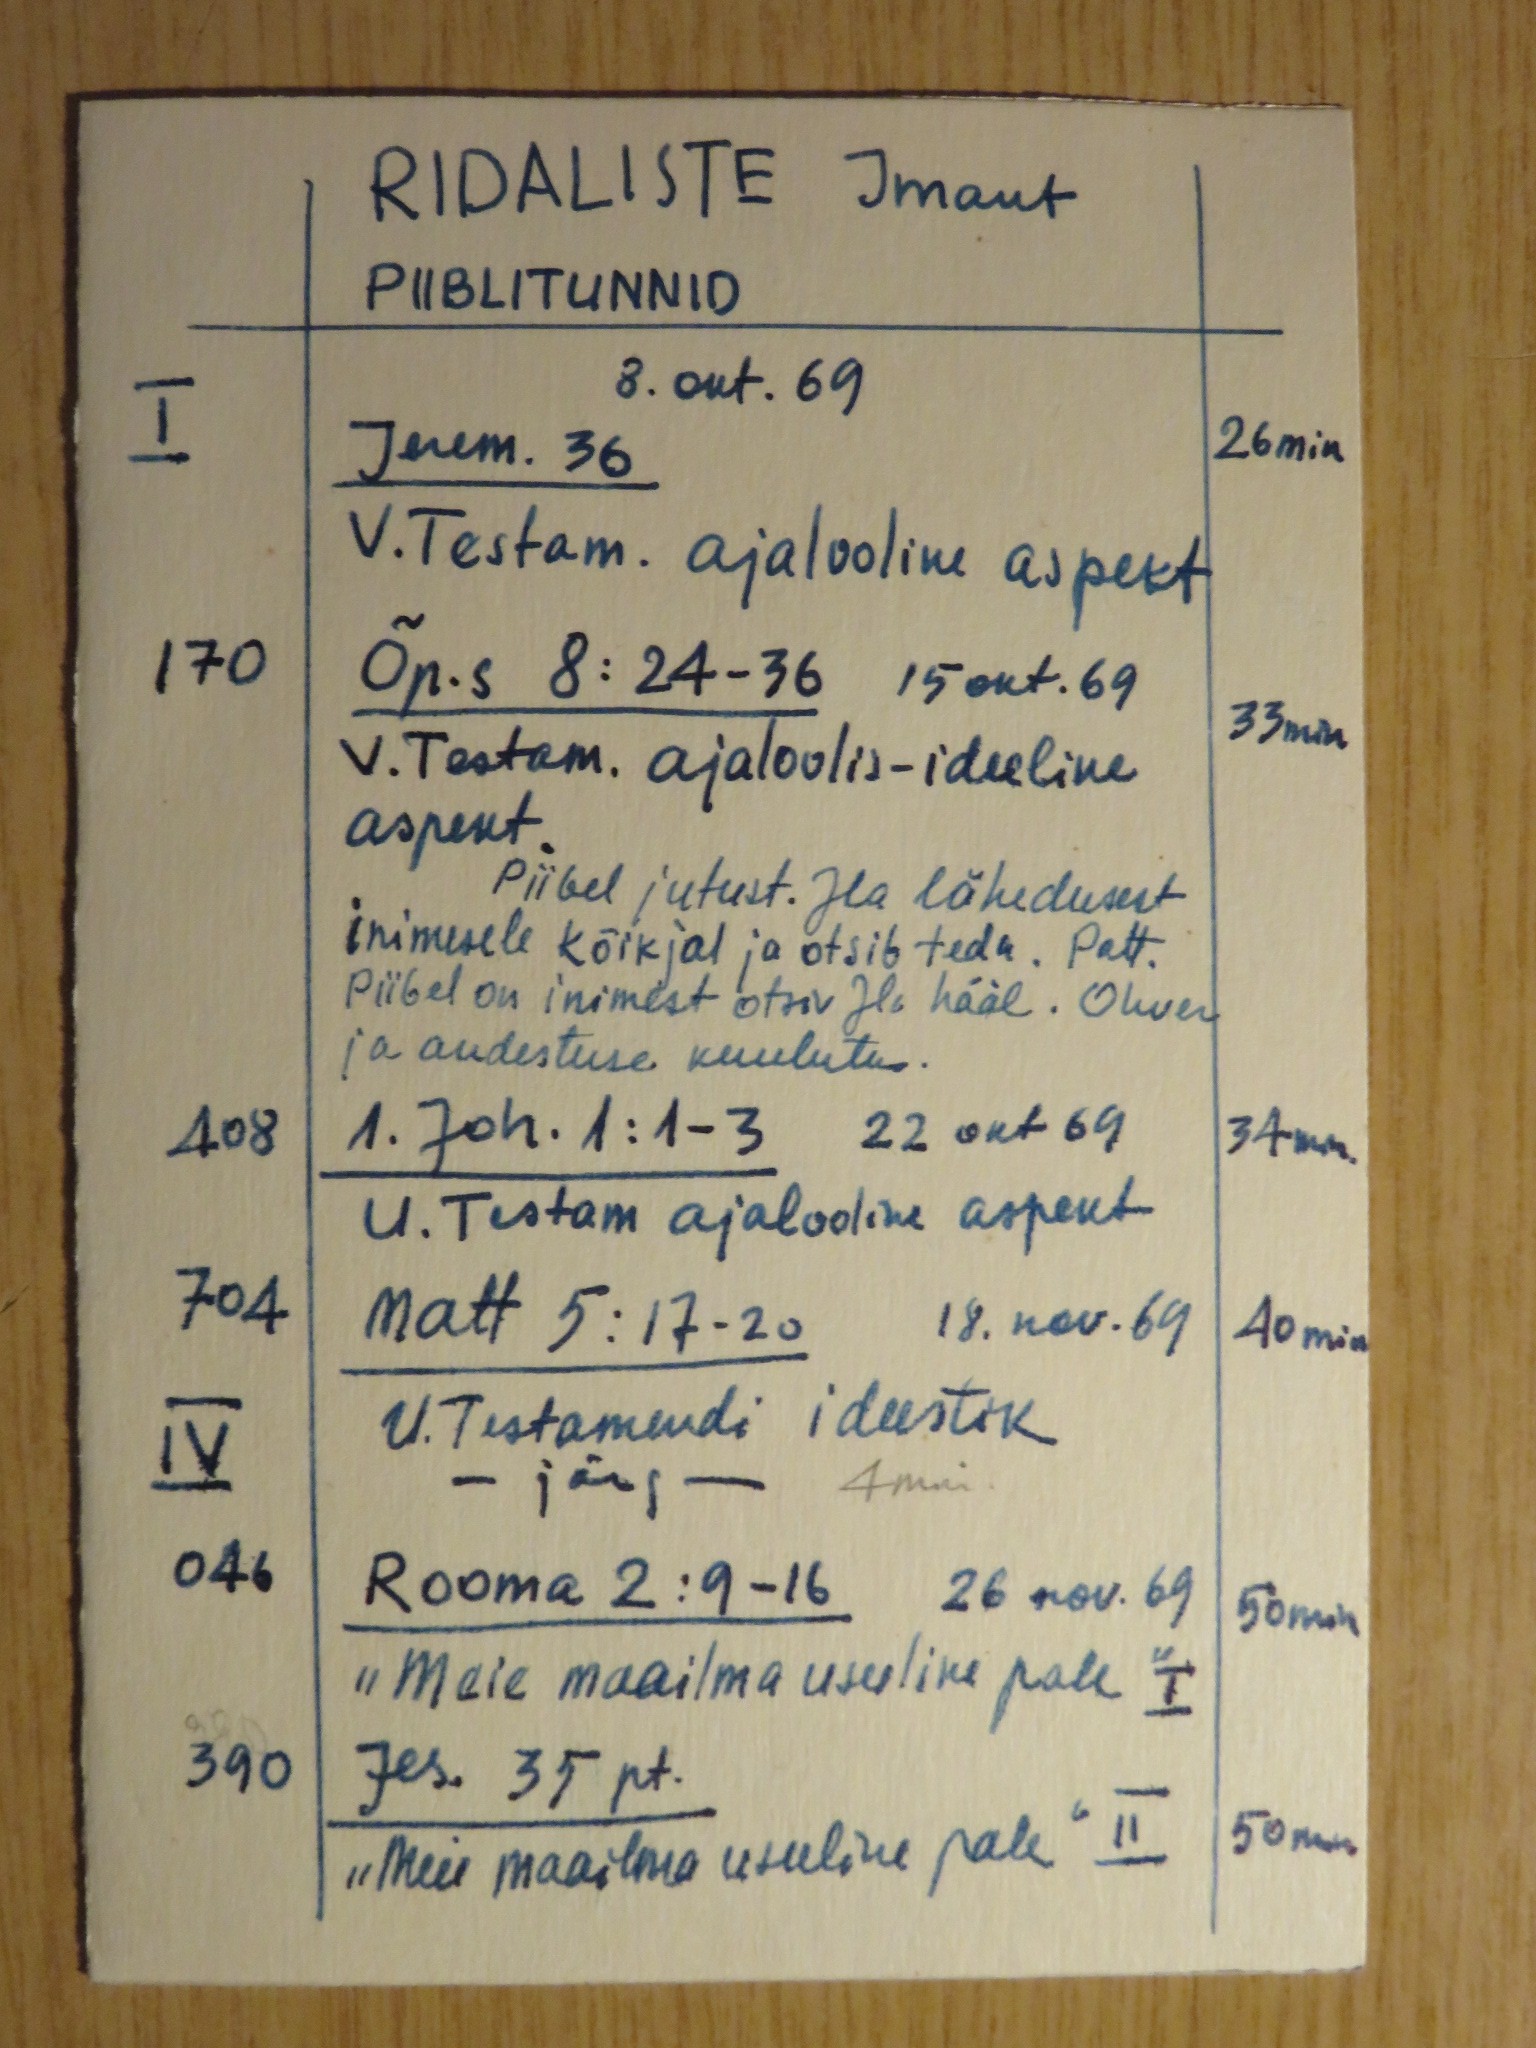 RIDALISTE Imant
PIIBLITUNNID
8. okt. 69
I Jerem. 36 26min
V.Testam. ajalooline aspekt
170 Õp.s 8:24-36 15 okt. 69 33min
V.Testam. ajaloolis-ideeline
aspekt.
Piibel jutust. Jla lähedusest
inimesele kõikjal ja otsib teda. Patt.
Piibel on inimest otsiv Jla hääl. Ohver
ja andestuse kuulutus.
408 1. Joh. 1:1-3 22 okt 69 34min.
U. Testam ajalooline aspekt
704 Matt 5:17-20 18. nov. 69 40min
U. Testamendi ideestik
IV — järg — 4 min.
046 Rooma 2:9-16 26 nov. 69 50min
„Meie maailma usuline pale" I
390 Jes. 35 pt.
„Meie maailma usuline pale" II 50min